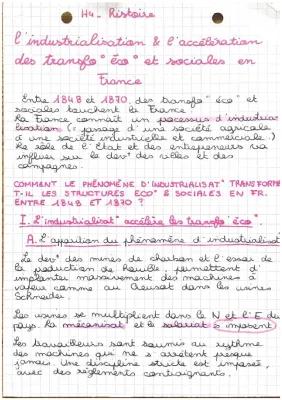 H4 - Histoire
L'industrialisation & l'accélération
des transfo° éco° et sociales en
France
Entre 1848 et 1870, des transfo° éco° et
sociales touchent la France
La France connaît un processus d'industria-
lisation (= passage d'une société agricole
à une société industrielle et commerciale.)
Le rôle de l'État et des entrepreneurs va
influer sur le dev° des villes et des
campagnes.
COMMENT LE PHÉNOMÈNE D'INDUSTRIALISAT° TRANSFORME
T-IL LES STRUCTURES ÉCO° & SOCIALES EN FR.
ENTRE 1848 ET 1870 ?
I. L'industrialisat° accélère les transfo° éco°.
A. L'apparition du phénomène d'industrialisat°
Le dev° des mines de charbon et l'essor de
la production de houille, permettent d'
implanter massivement des machines à
vapeur comme au Creusot dans les usines
Schneider.
Les usines se multiplient dans le N et l'E du
pays. La mécanisat° et le salariat s'imposent
Les travailleurs sont soumis au rythme
des machines qui ne s'arrêtent presque
jamais. Une discipline stricte est imposée,
avec des règlements contraignants.